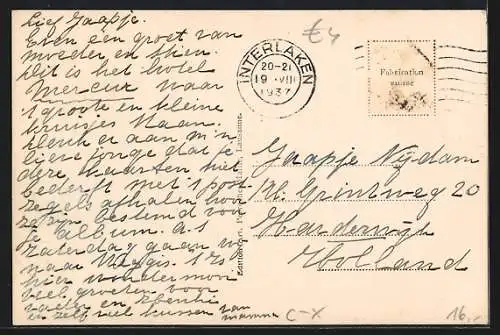 Lief Gaapje.
Even een groet van
moeder en Stien.
Dit is het hotel
Mercur waar
't groote en kleine
kruisjes staan.
Denk er aan m'n
lieve jonge dat je
deze kaarten niet
bederft met 't post
zegels afhalen hoor
ze zijn bestemd voor
je album. a.s
Zaterdag gaan we
naar Weggis. 't Is
hier wondermooi
veel groeten voor
vader en
en zelf veel kussen van
mamma
€4
INTERLAKEN
20-21
19 VIII
1937
Fabrication
suisse
Gaapje Nijdam
H. Grintweg 20
Harderwijk
Holland
C-X
16.-